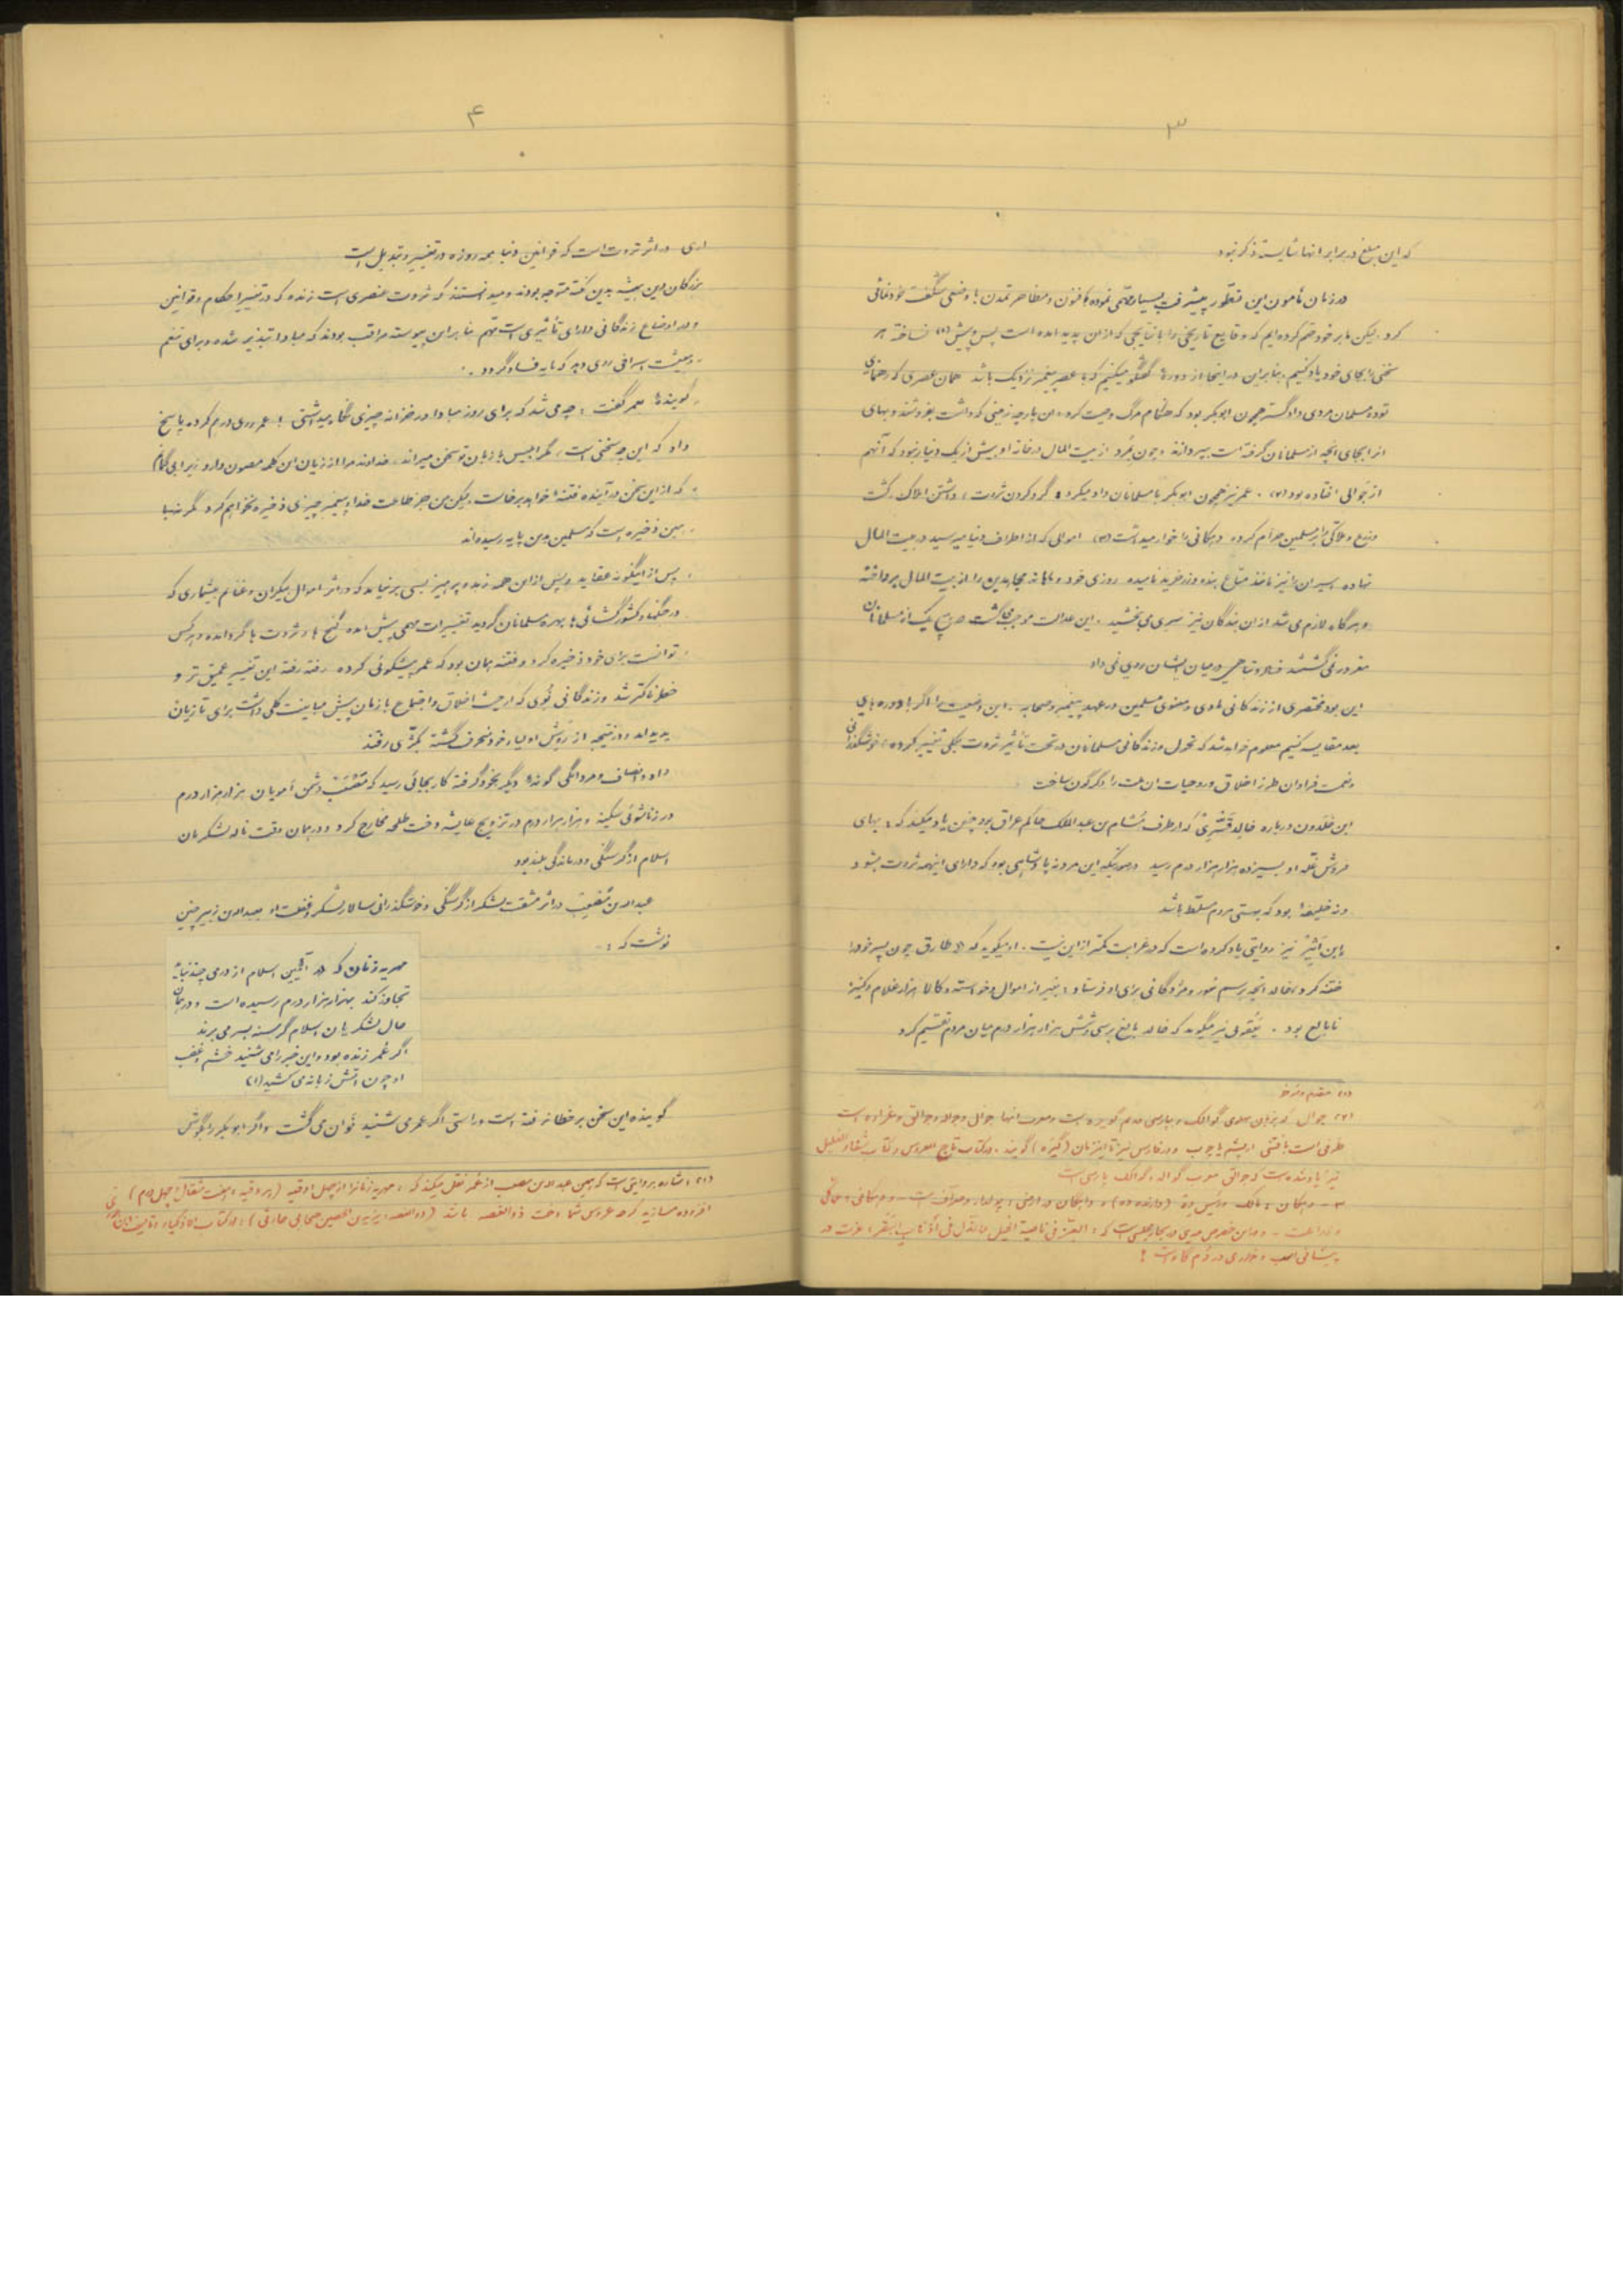 ۳
که این مبلغ در برابر انها شایسته ذکر نبود
در زمان مأمون این تطور پیشرفت بسیار مهمی نموده با فنون و مظاهر تمدن با وضعی شگفت خودنمائی
کرد. لیکن ما بر خود حتم کرده‌ایم که وقایع تاریخی را با نتایجی که از ان پدید امده است پس و پیش (۱) نساخته هر
سخنی را بجای خود یاد کنیم بنابراین در اینجا از دوره گفتگو میکنیم که با عصر پیغمبر نزدیک باشد همان عصری که
توده مسلمان مردی دادگستر چون ابوبکر بود که هنگام مرگ وصیت کرد این پارچه زمینی که داشت بفروشند و بهای
انرا بجای انچه از مسلمانان گرفته است بپردازند و چون بمُرد از بیت المال در خانه او بیش از یک دینار نبود که آنهم
از جَوالی افتاده بود (۲). عمر نیز همچون ابوبکر با مسلمانان داد میکرد و گرد کردن ثروت و داشتن املاک و کشت
وزرع و ملاکی را بر مسلمین حرام کرده و دهگانی را خوار میداشت (۳) اموالی که از اطراف دنیا میرسید در بیت المال
نهاده اسیران را نیز مانند متاع بنده و زرخرید نامیده روزی خود و ماهانه مجاهدین را از بیت المال پرداخته
و هرگاه لازم می شد از ان بندگان نیز سری می بخشید. این عدالت موجب میگشت که هیچ یک از مسلمانان
مغرور نمی گشتند فساد و تباهی در میان ایشان روی نمی داد
این بود مختصری از زندگانی مادی و معنوی مسلمین در عهد پیغمبر و صحابه. این وضعیت را اگر با دوره های
بعد مقایسه کنیم معلوم خواهد شد که تحول و زندگانی مسلمانان در تحت تأثیر ثروت بکلی تغییر کرده و خوشگذرانی
و نعمت فراوان طرز اخلاق و روحیات ان ملت را دگرگون ساخت
ابن خلدون درباره خالد قَسْری که از طرف هُشام بن عبدالملک حاکم عراق بود چنین یاد میکند که: بهای
فروش غلّه او بسیزده هزار هزار درم رسید در صورتیکه این مرد نه پادشاهی بود که دارای اینهمه ثروت بشود
و نه خلیفه بود که بهستی مردم مسلّط باشد
ابن اَثیر نیز روایتی یاد کرده است که در غرابت کمتر از این نیست. او میگوید که: طارق چون پسر خود را
ختنه کرد خالد انچه رسم سور و مژدگانی برای او فرستاد: بغیر از اموال و خواسته و کالا هزار غلام و کنیز
نابالغ بود. یَعْقوبی نیز میگوید که خالد بالغ برسی و شش هزار هزار درم میان مردم تقسیم کرد
(۱) مقدم و مؤخر
(۲) جوال
ظرفی است بافتنی از پشم یا چوب و در فارسی نیز تا این زمان (گیره) گویند. در کتاب تاج العروس و کتاب شفاء الغلیل
نیز یاد شده است که جوالق معرب گواله و گوالک پارسی است
۴
اری در اثر ثروت است که قوانین دنیا همه روزه در تغییر و تبدیل است
بزرگان دین همیشه بدین نکته متوجه بودند و میدانستند که ثروت عنصری است زنده که در تغییر احکام و قوانین
و در اوضاع زندگانی دارای تأثیری است مهم بنابراین پیوسته مراقب بودند که مبادا تبذیر شده و برای تنعم
و معیشت اسرافی روی دهد که مایه فساد گردد.
گوینده بعمر گفت: چه می شد که برای روز مبادا در خزانه چیزی نگاه میداشتی! عمر روی درهم کرده پاسخ
داد که این چه سخنی است، مگر ابلیس با زبان تو سخن میراند، خداوند مرا از زیان این کلمه مصون دارد زیرا
که از این سخن در آینده فتنه‌ها خواهد برخاست. لیکن من جز طاعت خدا و پیغمبر چیزی ذخیره نخواهم کرد
همین ذخیره است که مسلمین بدین پایه رسیده‌اند
پس از اینگونه عقاید و پس از این همه زهد و پرهیز بسی بر نیامد که در اثر اموال بیکران و غنائم بیشماری که
در جنگها و کشورگشائی ها بهره مسلمانان گردید تغییرات مهمی پیش امد گنج ها و ثروت ها گرد آمده و هر کس
توانست برای خود ذخیره کرد و فتنه همان بود که عمر پیشگوئی کرده رفته رفته این تغییر عمیق تر و
خطرناکتر شد و زندگانی نُوی که از حیث اخلاق و اجتماع با زمان پیش مباینت کلی داشت برای تازیان
پدید امد و در نتیجه از روش اولیاء خود منحرف گشته بکژی رفتند
داد و انصاف و مردانگی گونه دیگر بخود گرفته کار بجائی رسید که مُصْعَب دشمن اُمویان هزار هزار درم
در زناشوئی سکینه و هزار هزار درم در تزویج عایشه دخت طلحه مخارج کرد و در همان وقت ناله لشکریان
اسلام از گرسنگی و درماندگی بلند بود
عبدالله بن مُصْعَب در اثر مشقت لشکر از گرسنگی و خوشگذرانی سالار لشکر و غفلت او بعبدالله بن زبیر چنین
نوشت که:
مهریه زنان که در آئین اسلام از درمی چند نباید
تجاوز کند بهزار هزار درم رسیده است و در همان
حال لشکریان اسلام گرسنه بسر می برند
اگر عُمر زنده بود و این خبر را می شنید خشم و غضب
او چون اتش زبانه می کشید (۱)
گوینده این سخن بر خطا نرفته است و راستی اگر عمر می شنید نَوان می گشت و اگر ابوبکر را بگوش
(۱) اشاره بروایتی است که همین عبدالله بن مصعب از عمر نقل میکند که: مهریه زنانرا از چهل اوقیه